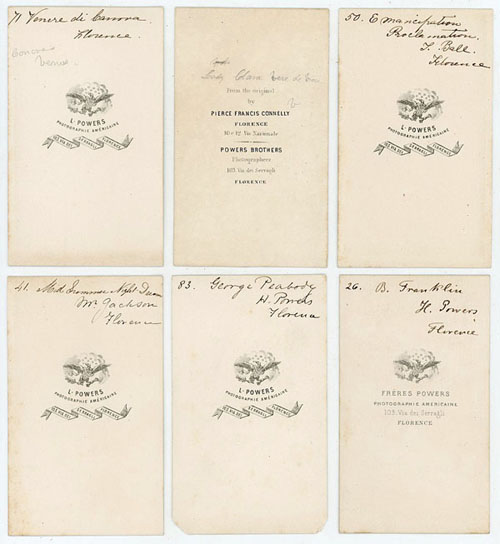 71 Venere di Canova.
Florence.
Venus.
L. POWERS
PHOTOGRAPHIE AMÉRICAINE
FLORENCE
Lady Clara Vere de Vere
from the original
by
PIERCE FRANCIS CONNELLY
FLORENCE
10 e 12 Via Nazionale
POWERS BROTHERS
Photographers
103 Via dei Serragli
FLORENCE
50. Emancipation
Proclamation.
T. Ball.
Florence
L. POWERS
PHOTOGRAPHIE AMÉRICAINE
FLORENCE
41. Mid Summer Night Dream
Mr Jackson
Florence
L. POWERS
PHOTOGRAPHIE AMÉRICAINE
FLORENCE
83. George Peabody
H. Powers
Florence
L. POWERS
PHOTOGRAPHIE AMÉRICAINE
FLORENCE
26. B. Franklin
H. Powers
Florence
FRÈRES POWERS
PHOTOGRAPHIE AMÉRICAINE
103 Via dei Serragli
FLORENCE